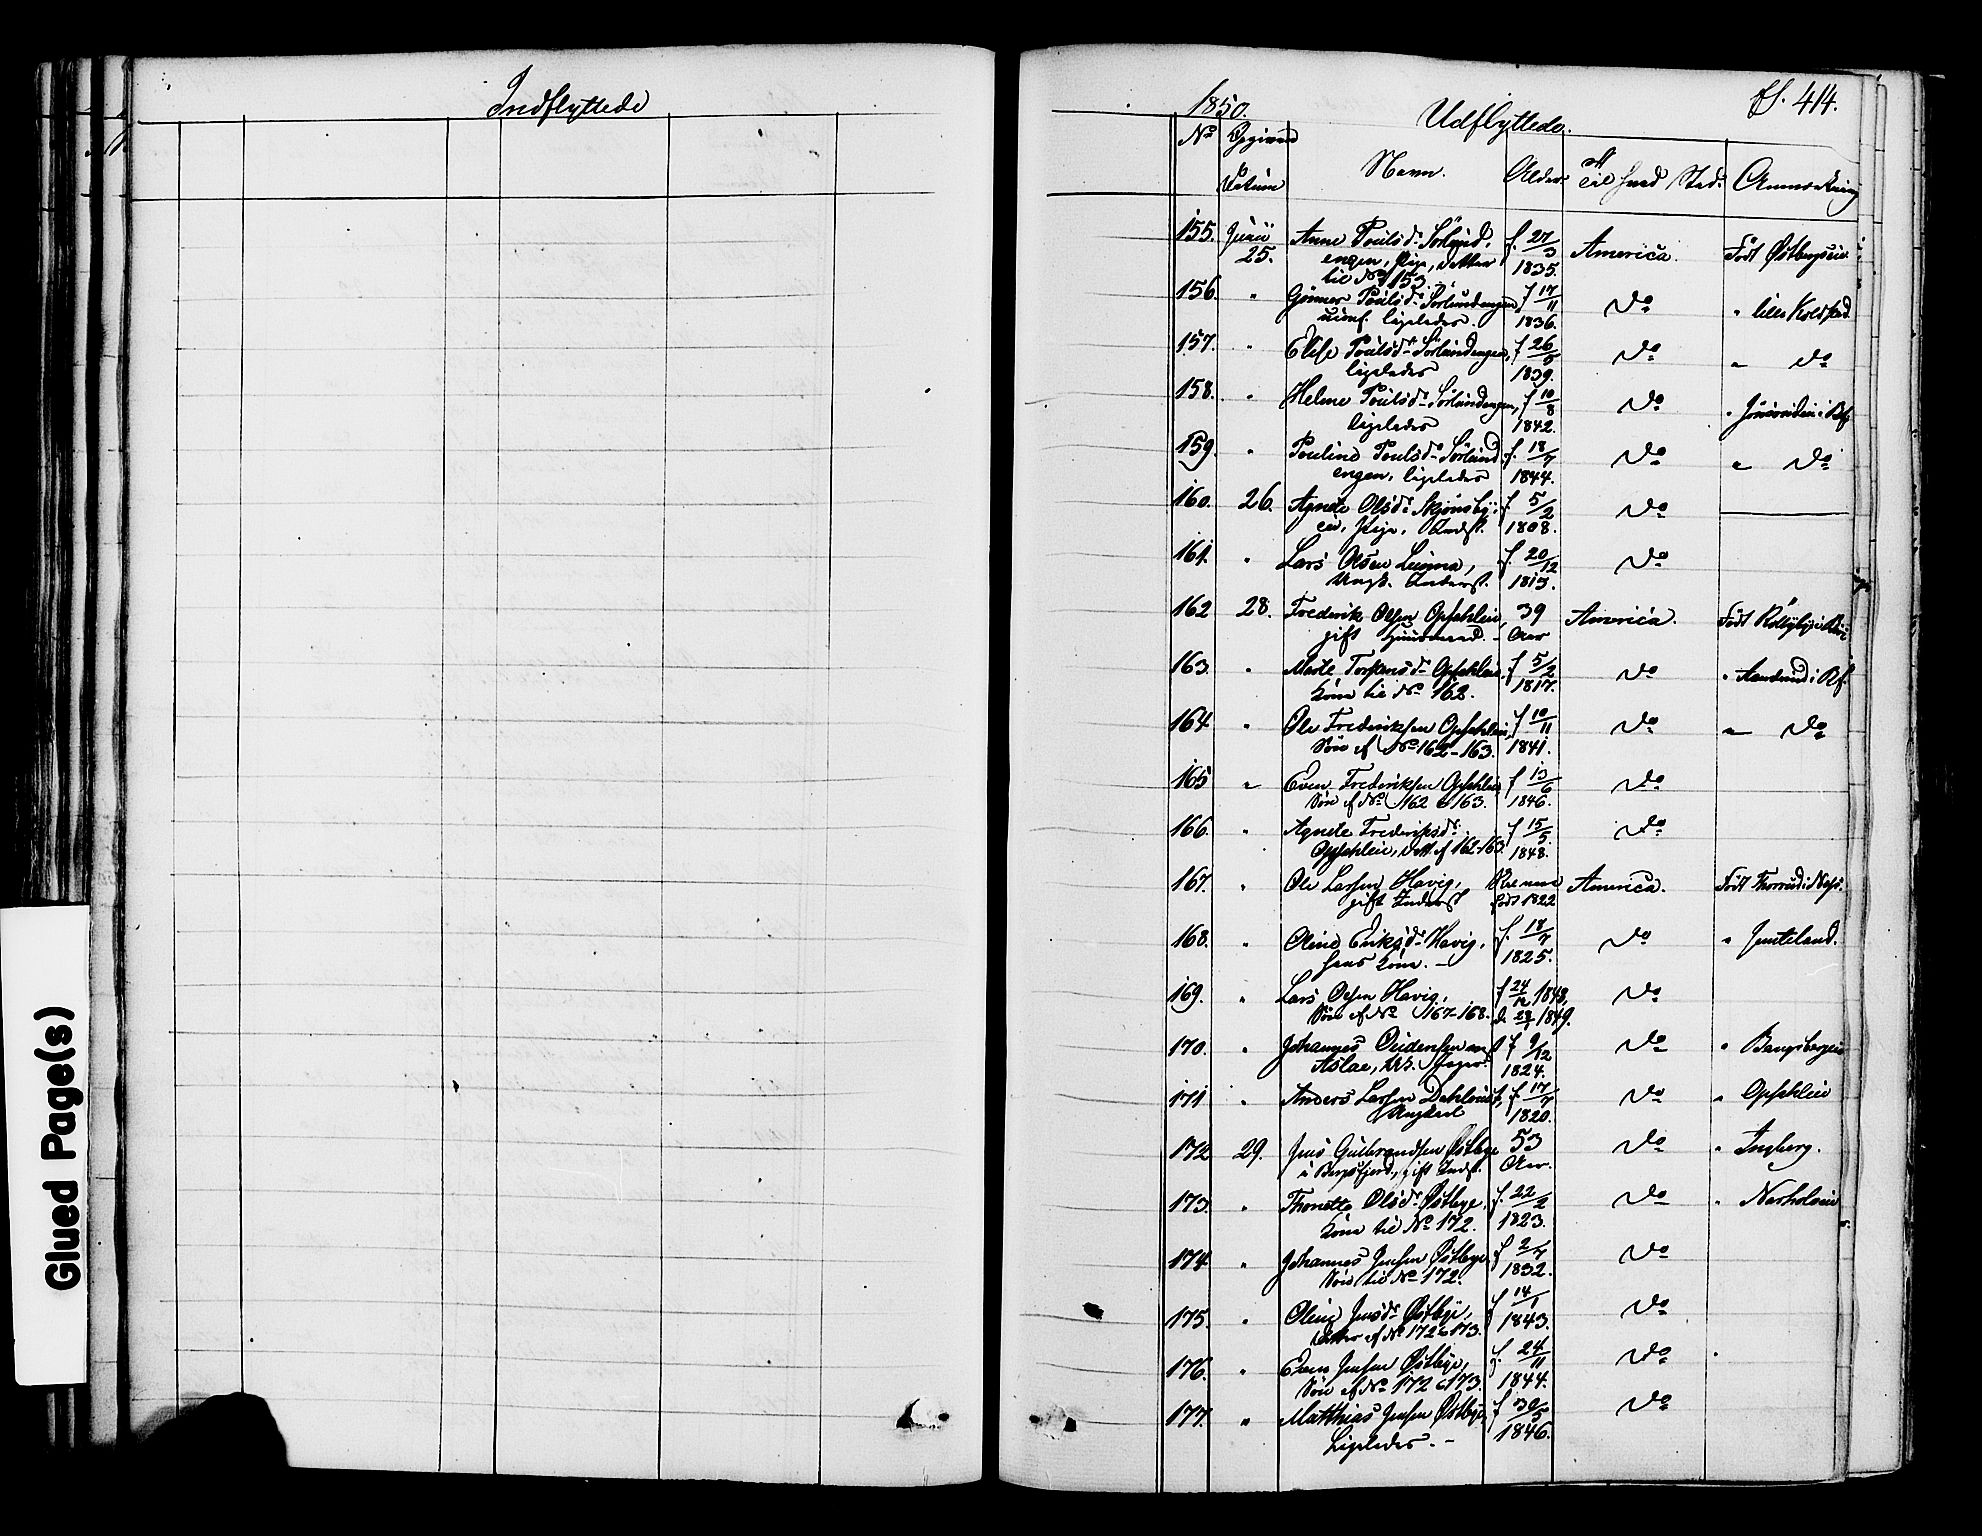 Indflyttede
Glued Page(s)
1850.
Udflyttede.
fl. 414.
No Opgivne Datum Navn. Alder. Til hvad Sted. Anmærkning
155. Junii 25. Anne Poulsd. Sörlund- f. 27/3 1835. America. Født Østbergseie
engen, Pige, Datter
til No 153.
156. " Gunner Poulsd. Sörlundengen f 17/11 1836. do " lille Kolstad.
ligeledes.
157. " Elise Poulsd. Sörlundengen, f 26/5 1839. do " do
ligeledes
158. " Helene Poulsd. Sörlundengen, f 10/8 1842. do
ligeledes
159. " Pauline Poulsd. Sörlund- f. 18/7 1844. do " do
engen, ligeledes
160. 26. Agnete Olsd. Skjönsby- f. 5/2 1808. do
eie, Pige, Indst.
161. " Lars Olsen f. 20/12 1813. do
Ungk. Inderst.
162 28. Frederik Olsen Opsahleie, 39 Aar America. Født
gift Huusmand.
163. " Marte Torstensd. Opsahleie, f 5/2 1817. do
Kone til No 162.
164 " Ole Frederiksen Opsahleie, f 10/11 1841. do " do
Søn af No 162-163.
165 " Even Frederiksen Opsahleie f 13/6 1846. do
Søn af No 162 & 163.
166. " Agnete Frederiksd. f 15/5 1848. do
Opsahleie, Datt. af 162-163.
167. " Ole Larsen Havig, født 1822 America. Født Thorrud i Næs.
gift Inderst
168. " Oline Eriksd. Havig, f. 18/7 1825. do " Jemteland.
hans Kone.
169. " Lars Olsen Havig, f 24/12 1848, d. 23/1 1849. do
Søn af No 167-168.
170. " Johannes f 9/12 1824. do " Bangsbergeie
171 " Anders Larsen f. 17/7 1820. do " Opsahleie
Ungkarl
172 29. Jens Gulbrandsen Østbye 53 Aar. do " Ingberg.
i gift Indst.
173. " Thonette Olsd. Østbye, f. 22/2 1823. do " Narholseie
Kone til No 172.
174. " Johannes Jensen Østbye, f 2/7 1832. do
Søn til No 172.
175. " Oline Jensd. Østbye, f 14/1 1843. do
Datter af No 172 & 173.
176. " Even Jensen Østbye, f. 24/11 1844. do
Søn af No 172 & 173.
177. " Matthias Jensen Østbye f 30/5 1846. do
Ligeledes.